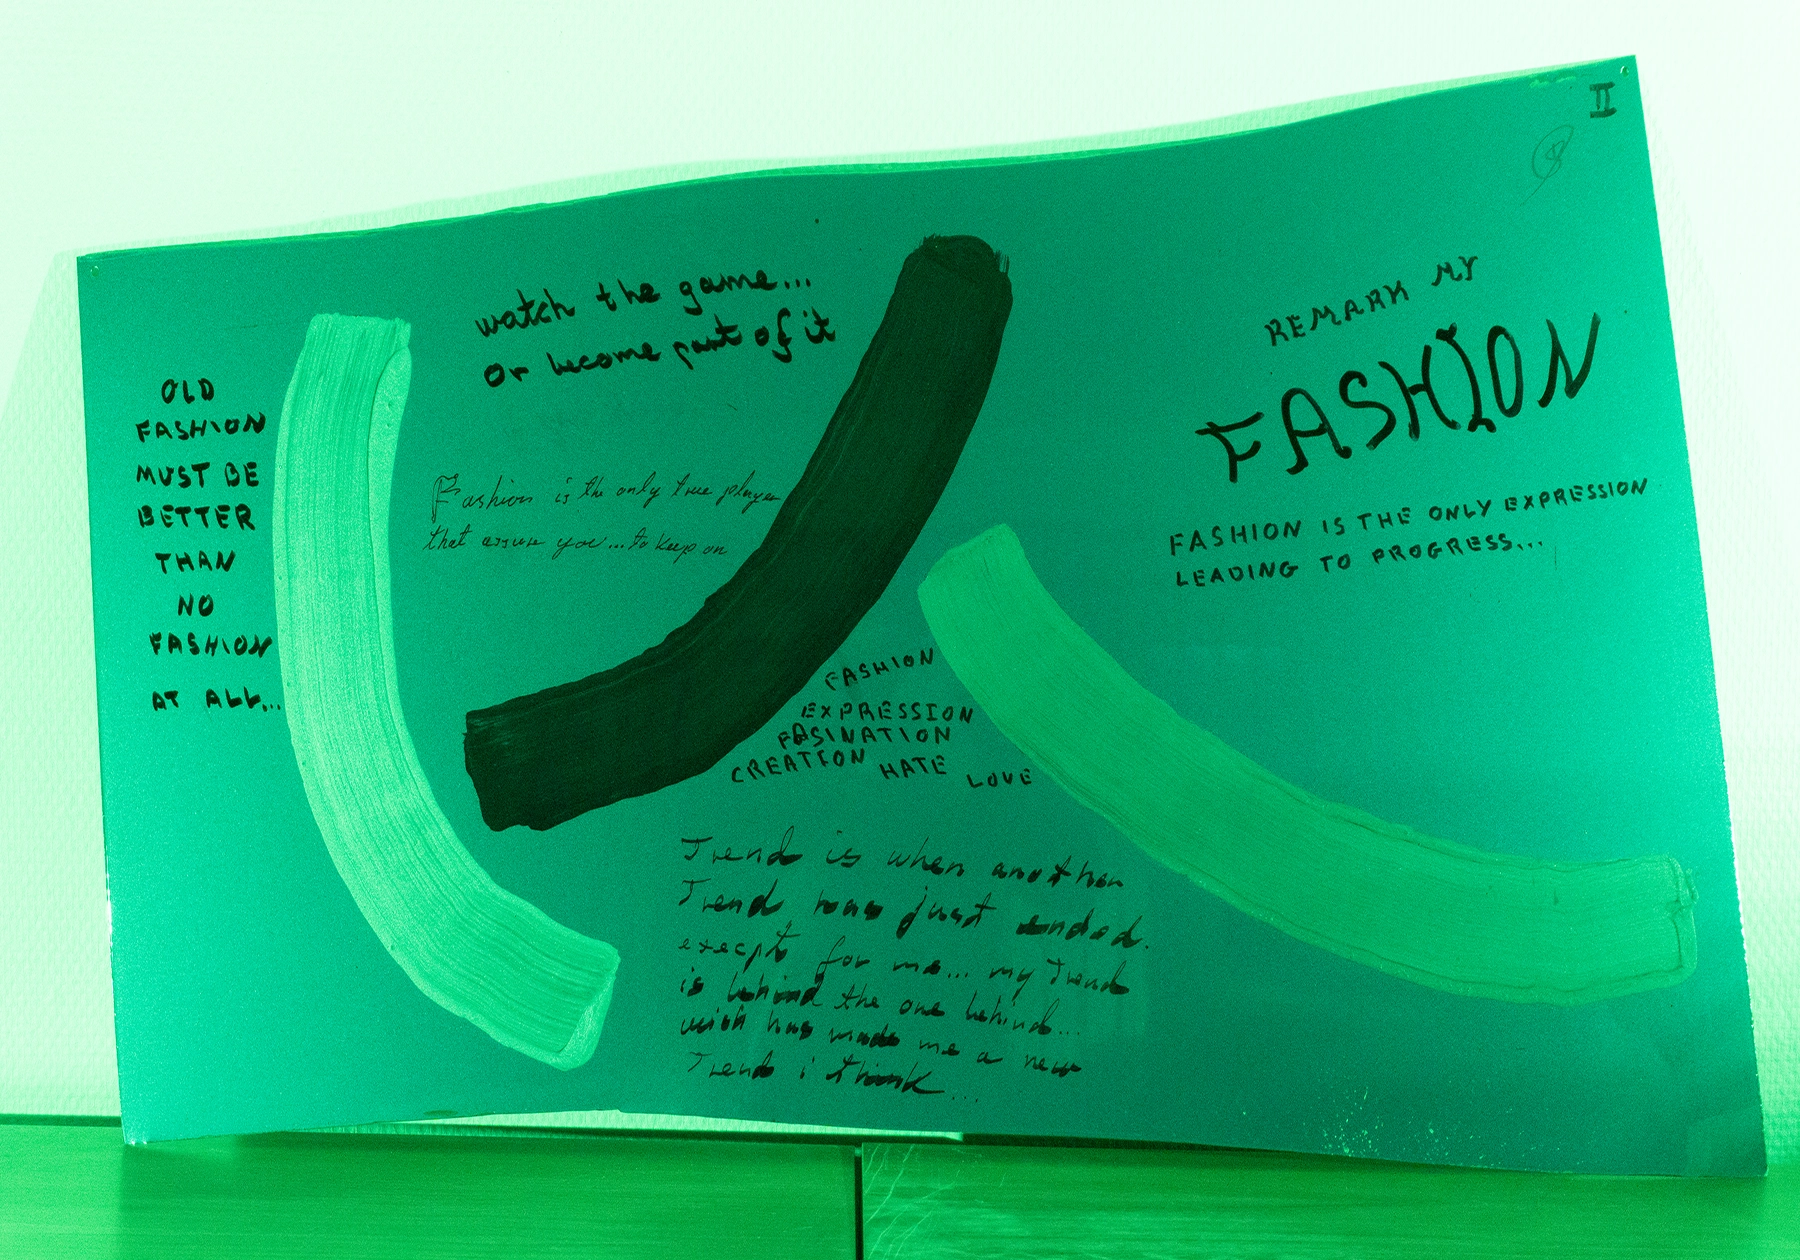 II
OLD
FASHION
MUST BE
BETTER
THAN
NO
FASHION
AT ALL...
watch the game...
or become part of it
Fashion is the only true player
that assure you...to keep on
REMARK MY
FASHION
FASHION IS THE ONLY EXPRESSION
LEADING TO PROGRESS...
FASHION
EXPRESSION
FASINATION
CREATION HATE LOVE
Trend is when another
Trend has just ended.
execpt for me... my Trend
is behind the one behind...
wich has made me a new
Trend i think...